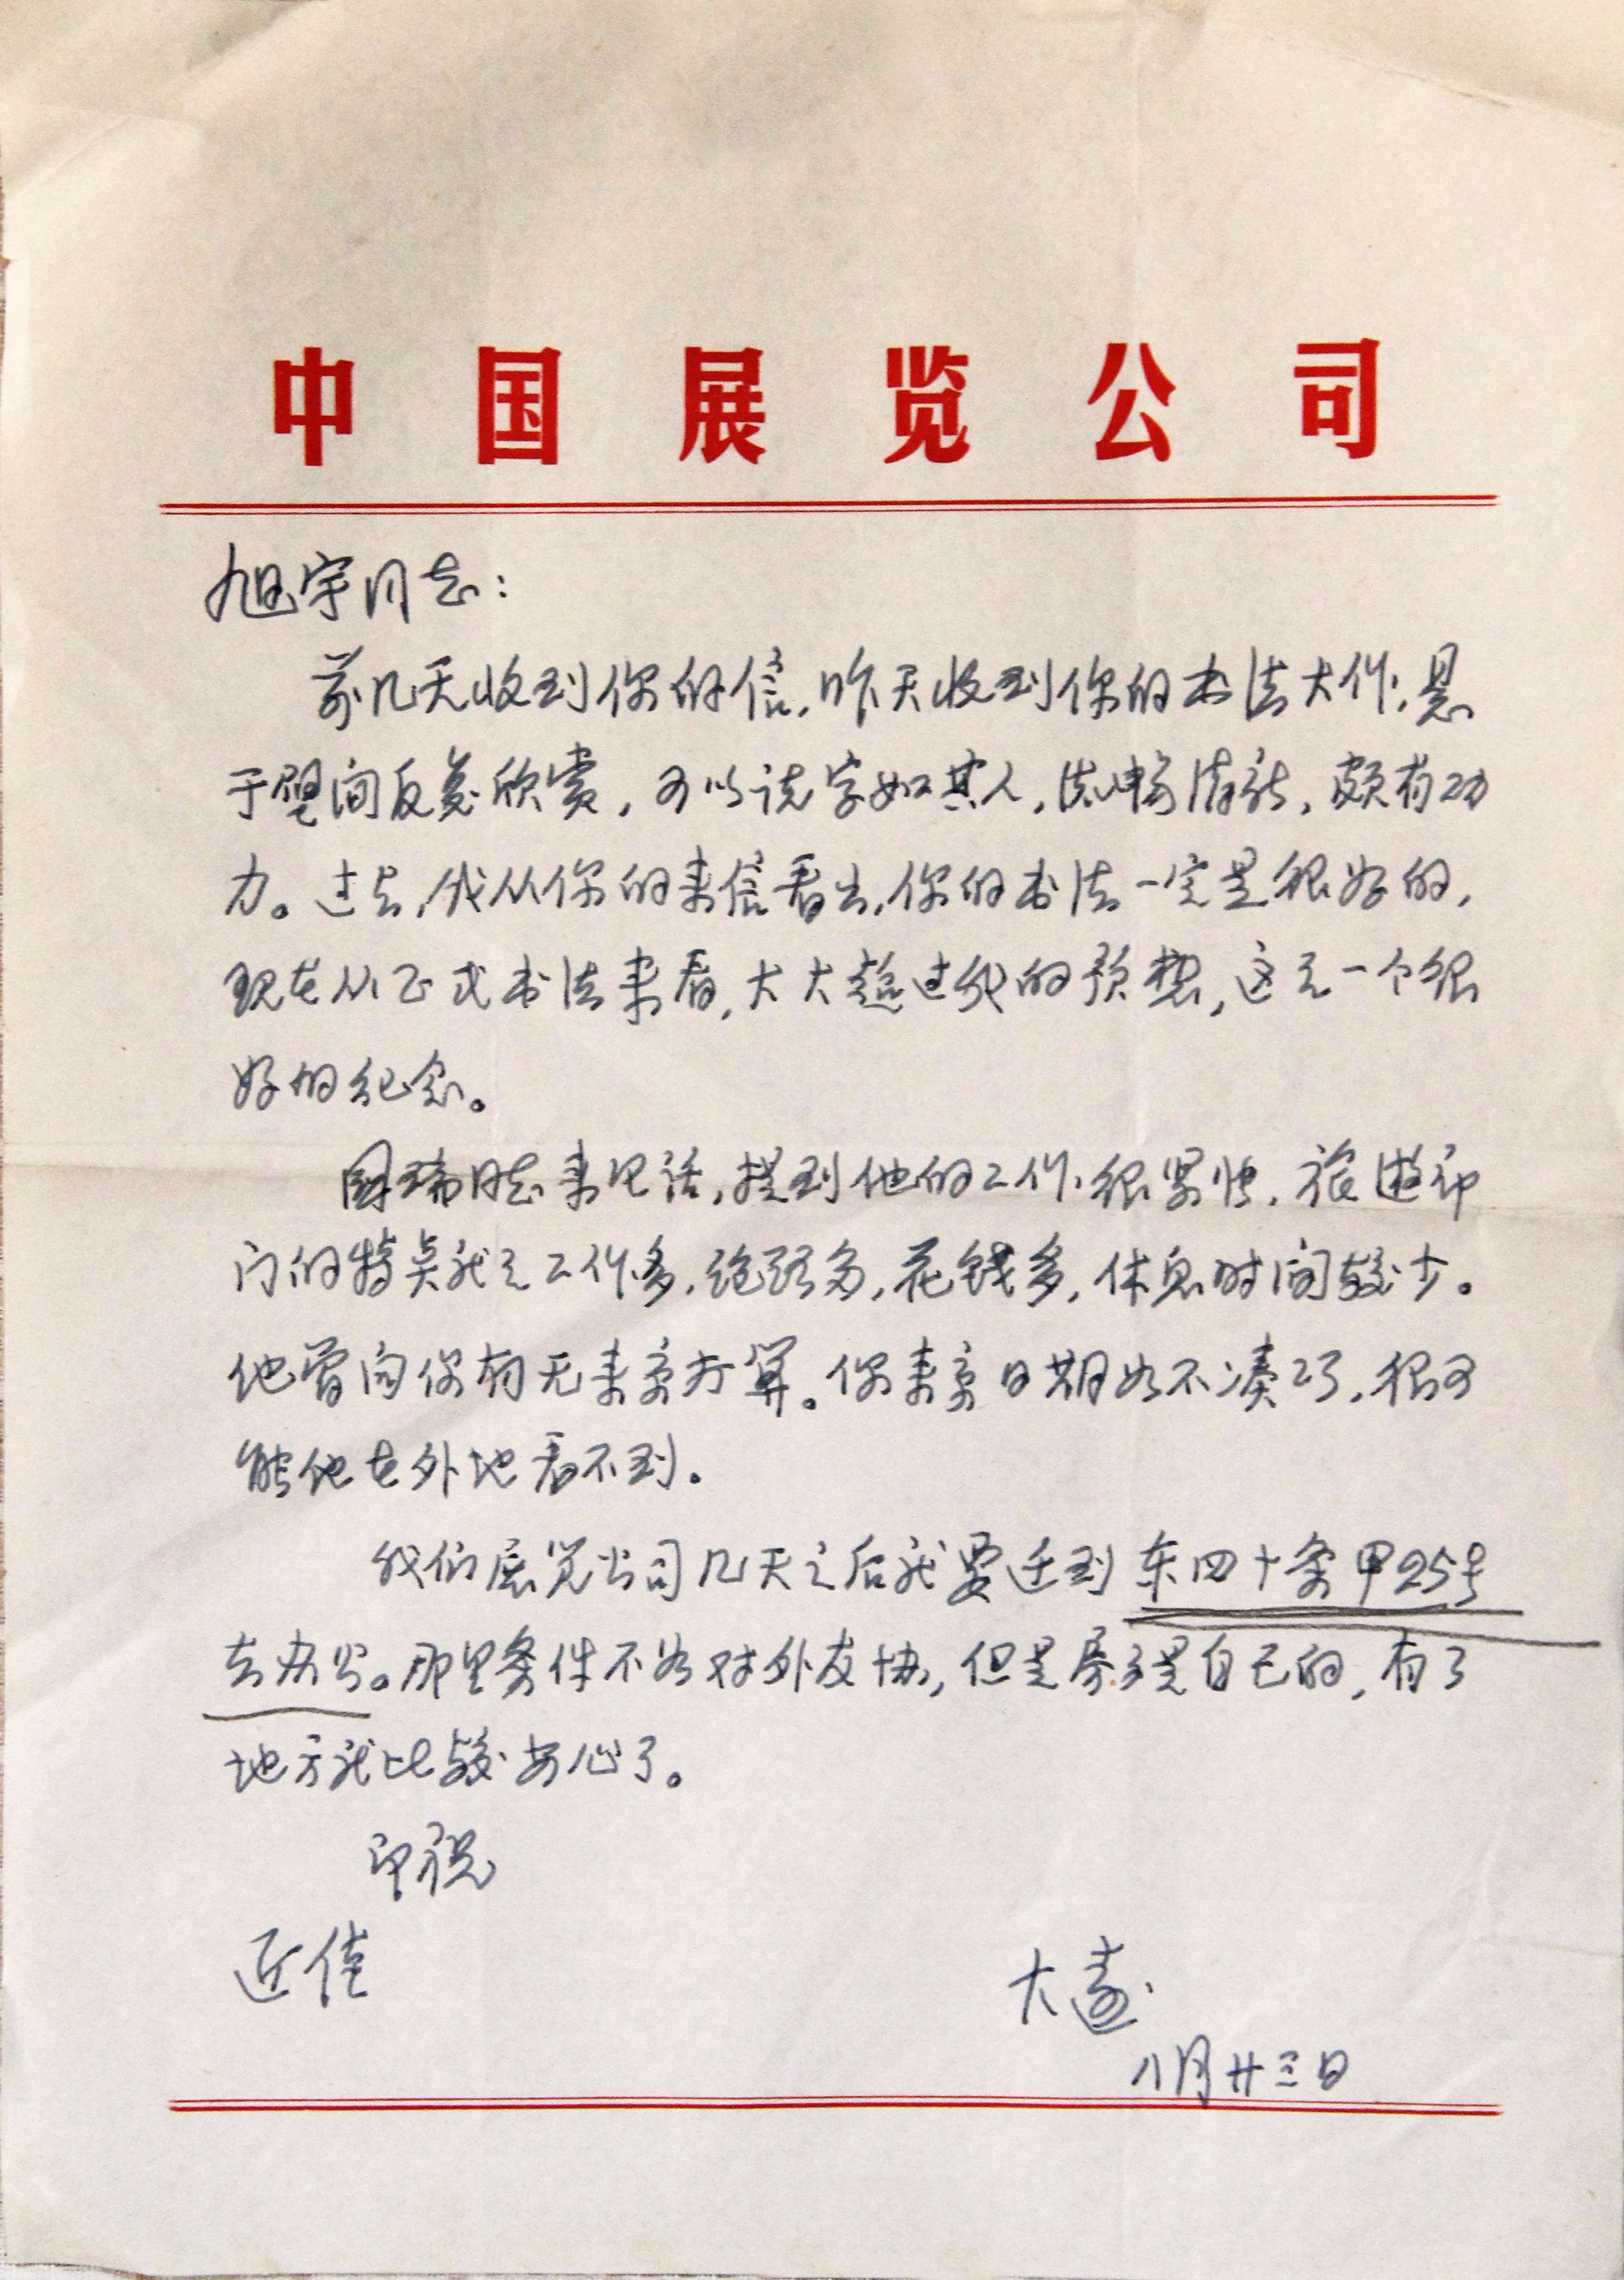 中国展览公司
旭宇同志：
前几天收到你的信，昨天收到你的书法大作，悬
于壁间反复欣赏，可以说字如其人，流畅清新，颇有功
力。过去，我从你的来信看出，你的书法一定是很好的，
现在从正式书法来看，大大超过我的预想，这是一个很
好的纪念。
国瑞同志来电话，提到他的工作很紧张，旅游部
门的特点就是工作多，跑路多，花钱多，休息时间较少。
他曾问你有无来京打算。你来京日期如不凑巧，很可
能他在外地看不到。
我们展览公司几天之后就要迁到东四十条甲25号
去办公。那里条件不如对外友协，但是房子是自己的，有了
地方就比较安心了。
即祝
近佳
大
八月廿三日